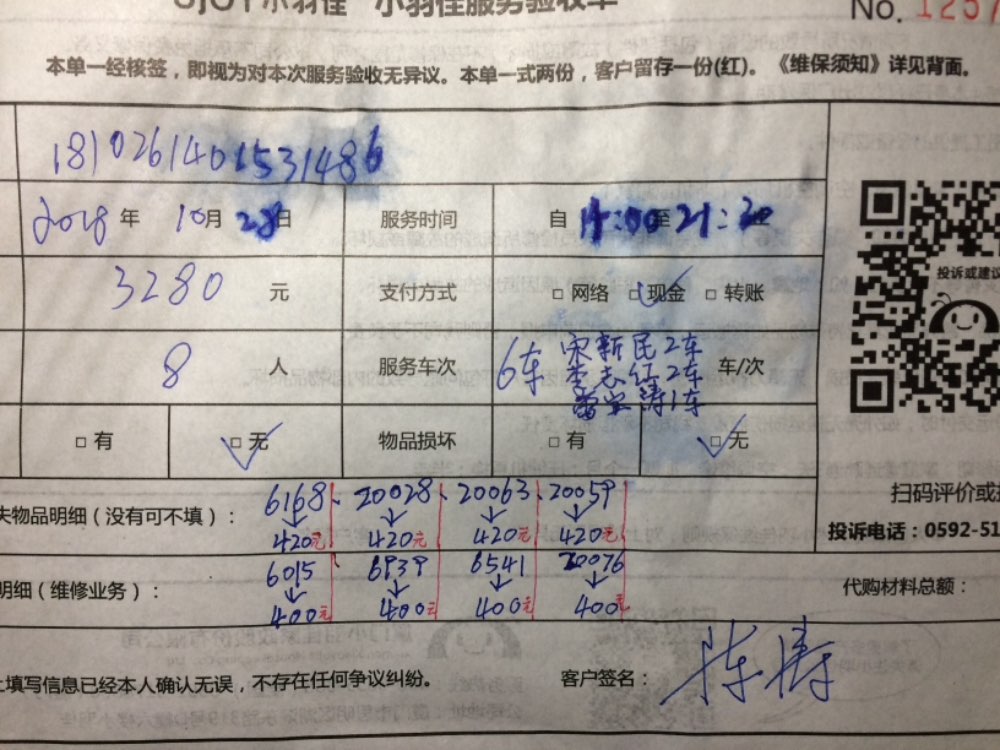 小羽佳服务验收单
No. 1257
本单一经核签，即视为对本次服务验收无异议。本单一式两份，客户留存一份(红)。《维保须知》详见背面。
1810261401531486
2018年 10月 28日 服务时间 自 14:00至 21:30
3280 元 支付方式 □ 网络 □ 现金 □ 转账
投诉或建议
8 人 服务车次 6车 宋新民2车 李志红2车 雷宝涛1车 车/次
□ 有 □ 无 物品损坏 □ 有 □ 无
扫码评价或
失物品明细（没有可不填）： 6168、20028、20063、20059
420元 420元 420元 420元
投诉电话：0592-51
明细（维修业务）： 6015 6939 6541 20076
400元 400元 400元 400元
代购材料总额：
上填写信息已经本人确认无误，不存在任何争议纠纷。 客户签名： 陈涛